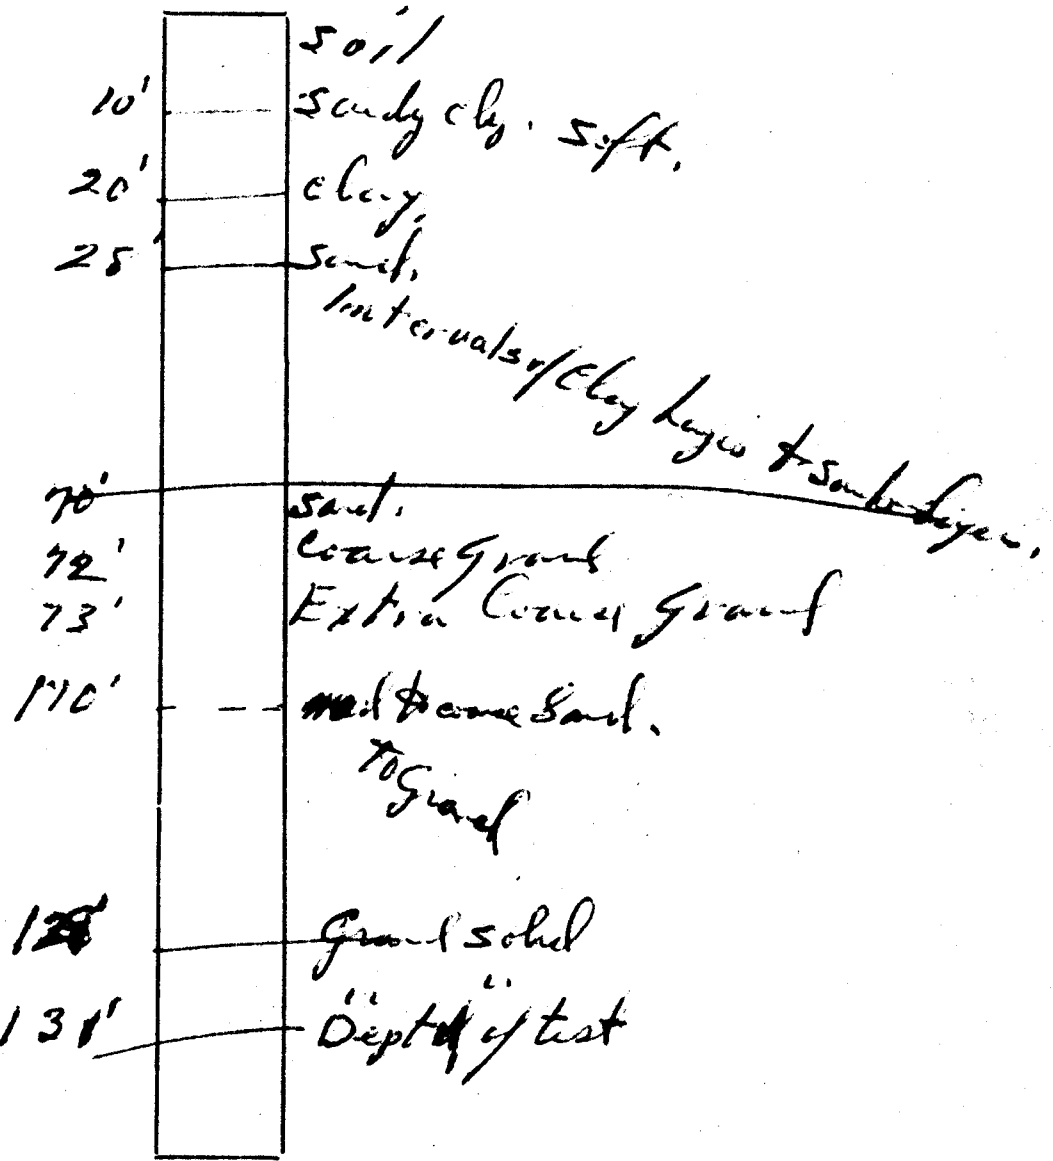 soil
10' sandy cly. soft.
20' clay.
25' sand.
Intervals of Clay Layers to Sand Layer.
70' sand.
72' Coarse Gravel
73' Extra Coarse Gravel
110' med to coarse Sand.
To Gravel
Gravel solid
131' Depth of test